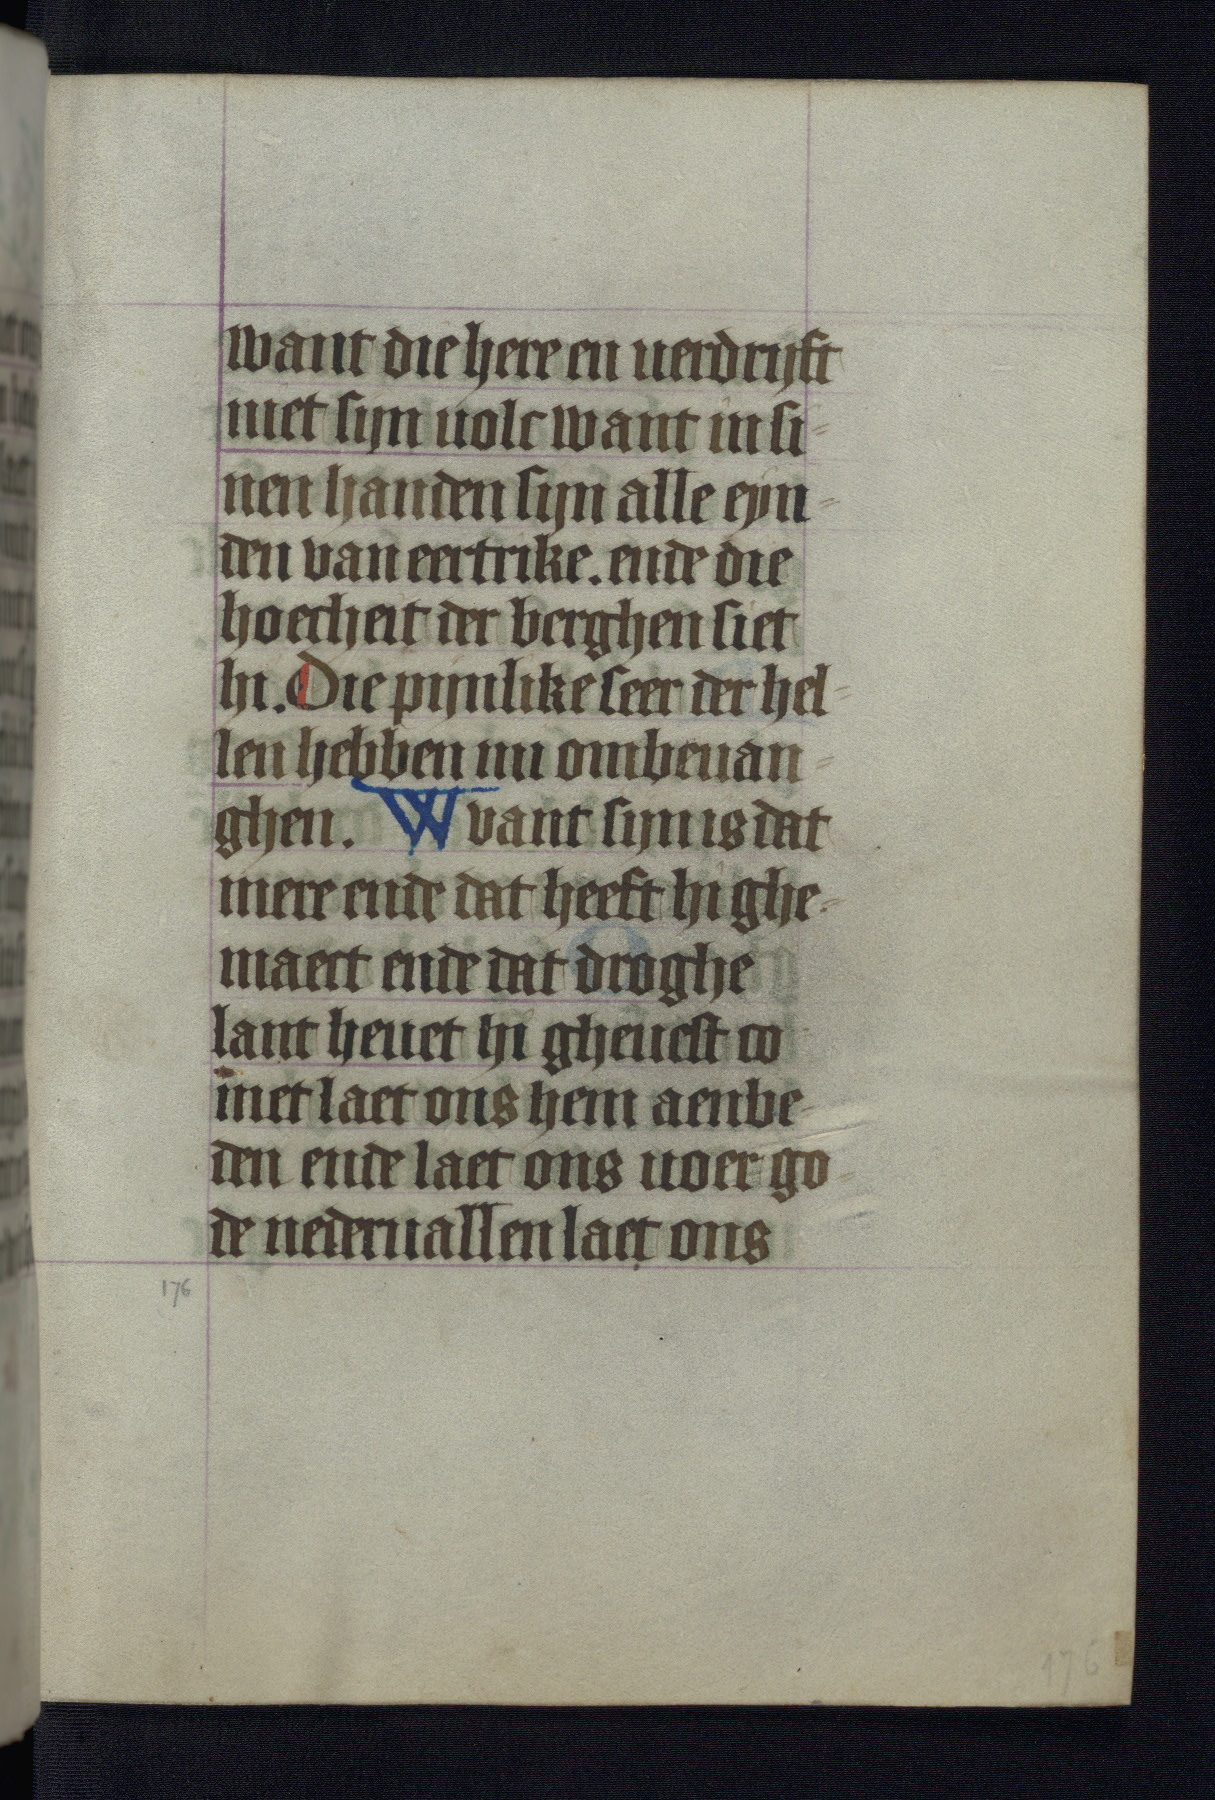 want die here en uerdrijft
niet sijn uolc want in si-
nen handen sijn alle eyn-
den van eertrike. ende die
hoecheit der berghen siet
hi. Die pijnlike seer der hel-
len hebben mi ombeuan-
ghen. Wvant sijn is dat
mere ende dat heeft hi ghe-
maect ende dat droghe
lant heuet hi gheuest co
met laet ons hem aenbe-
den ende laet ons uoer go-
de nederuallen laet ons
176
176